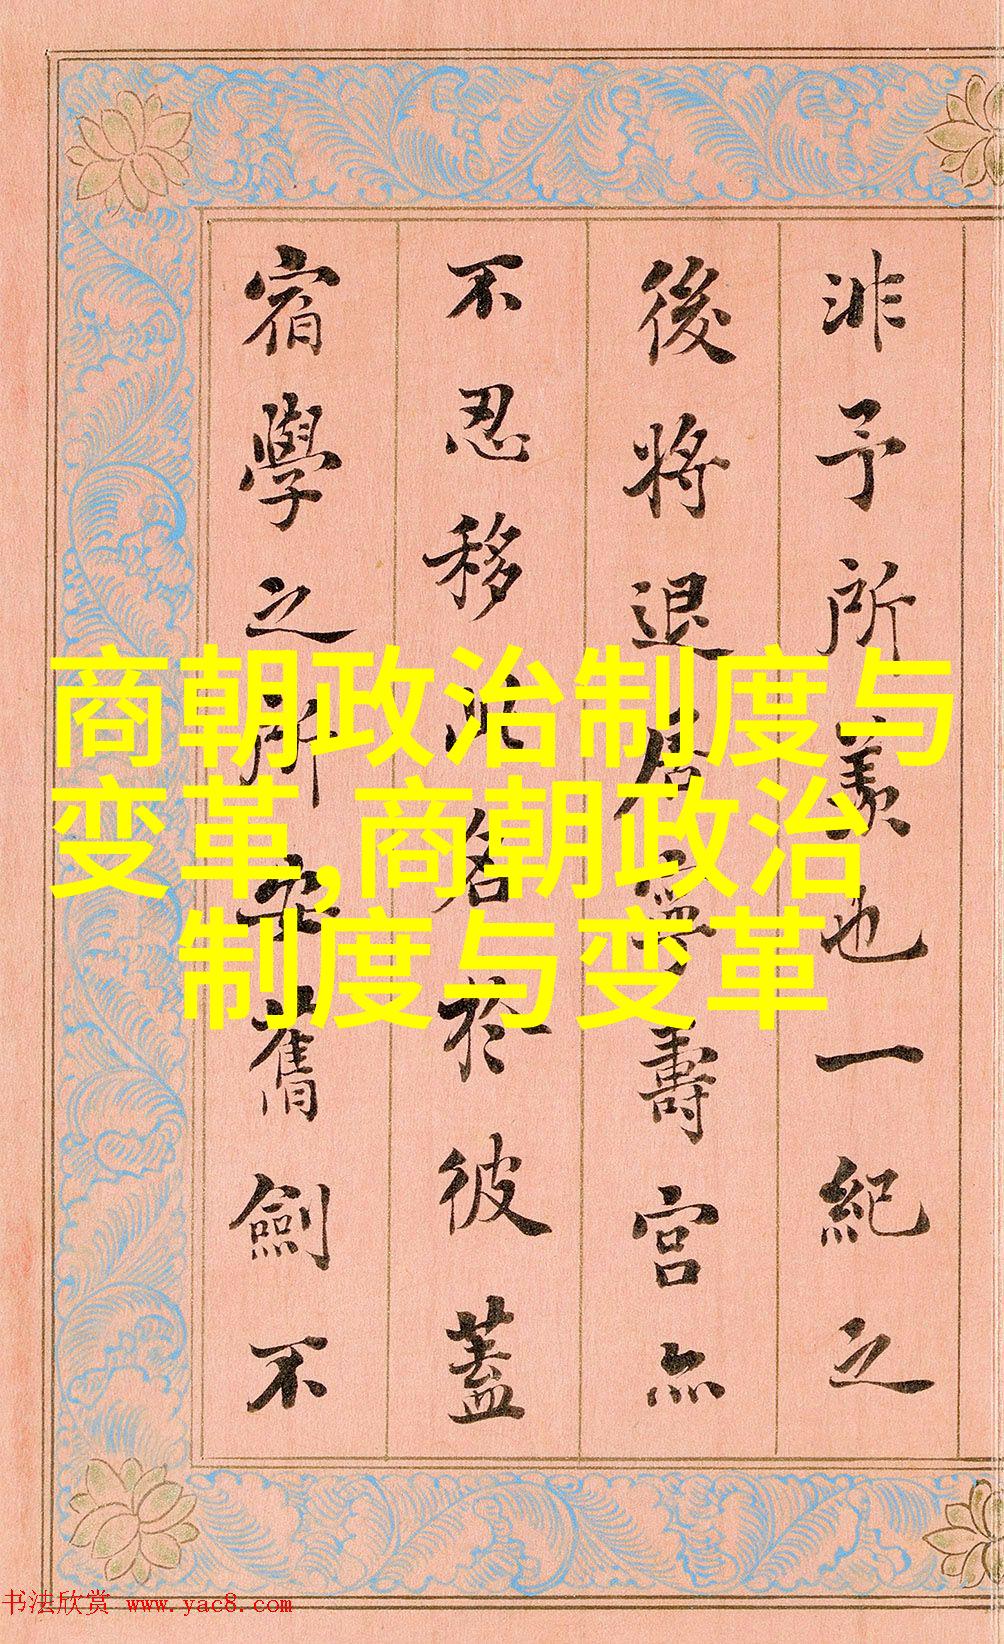 非予所羡也一紀之
後將退居寧壽宫亦
不忍移此名於彼蓋
宿學之所安舊劍不
商朝政治制度与
变革,商朝政治
制度与变革
书法欣赏 www.yac8.com